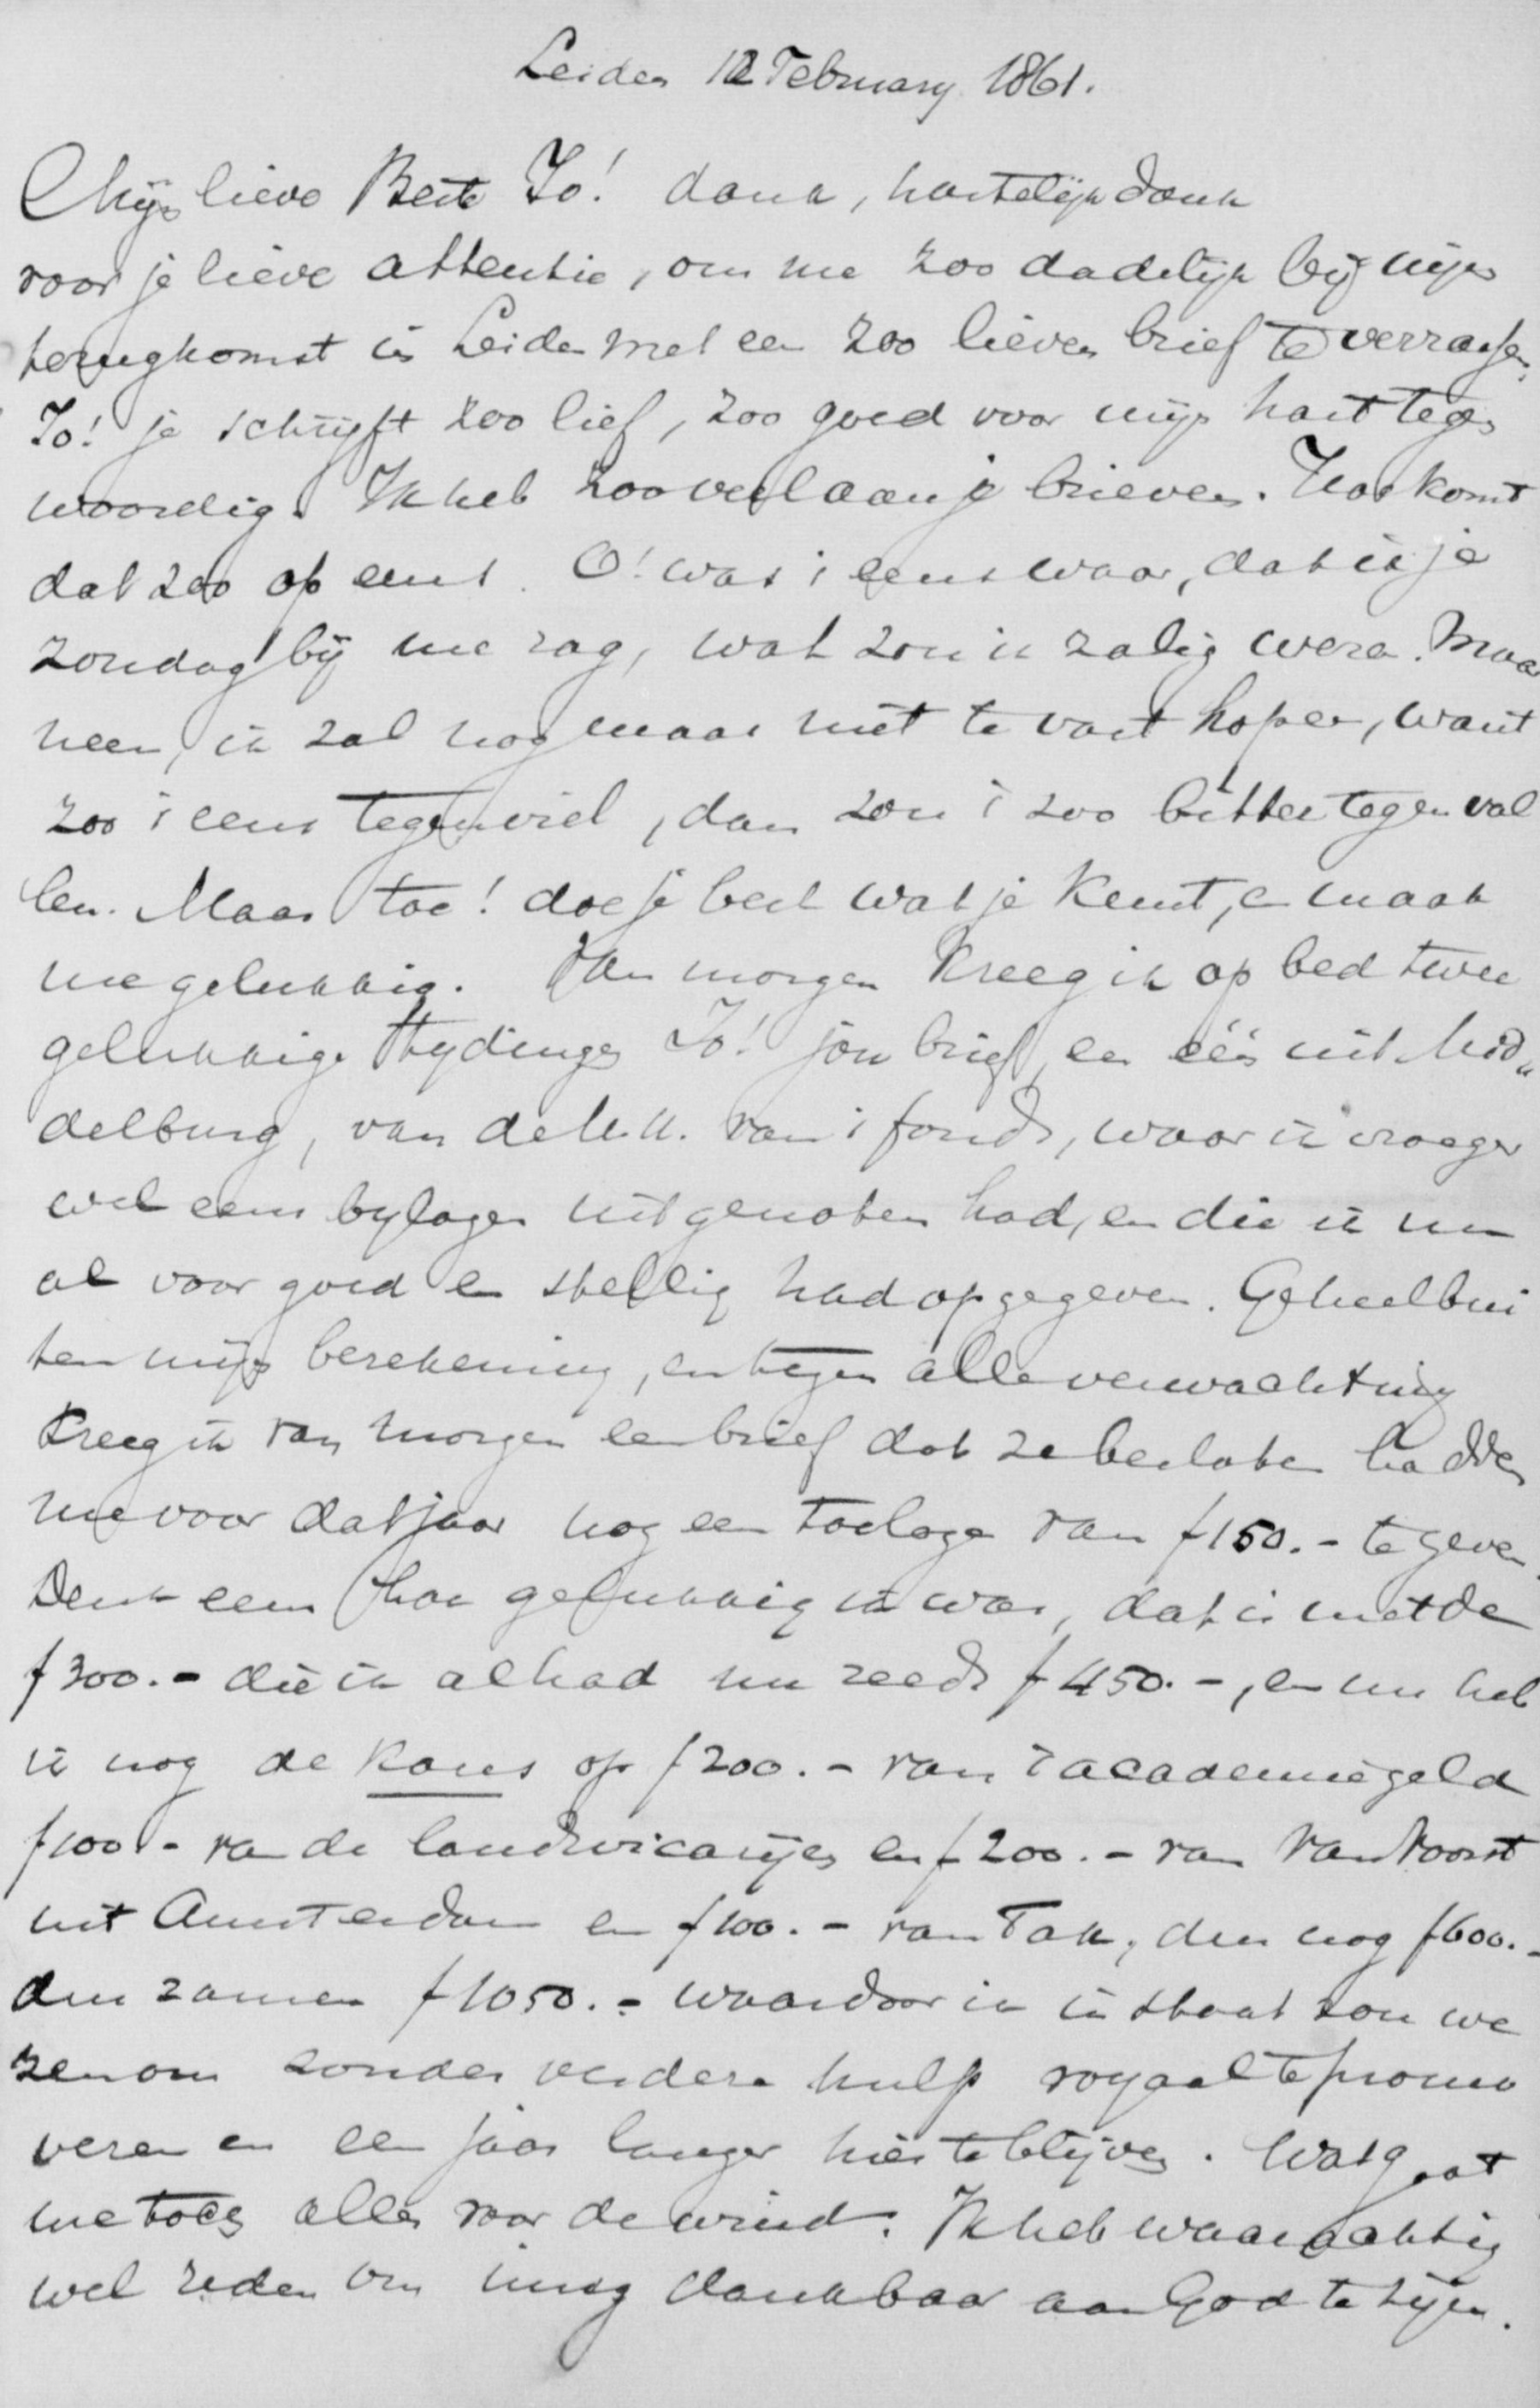 Leiden 12 February 1861.
Mijn lieve Beste Jo! dank, hartelijk dank
voor je lieve attentie, om me zoo dadelijk bij mijn
terugkomst in Leiden met een zoo lieven brief te verrassen.
Jo! je schrijft zoo lief, zoo goed voor mijn hart tegen
woordig. Ik heb zooveel aan je brieven. Hoe komt
dat zoo op eens. O! was 't eens waar, dat ik je
zondag bij me zag, wat zou ik zalig weze. Maar
neen, ik zal nog maar niet te vast hopen, want
zoo 't eens tegenviel, dan zou 't zoo bitter tegen val
len. Maar toe! doe je best wat je kunt, en maak
me gelukkig. Van morgen kreeg ik op bed twee
gelukkige tydingen Jo! jou brief, en één uit Mid„
delburg, van de H.H. van 't fonds, waar ik vroeger
wel eens bylagen uit genoten had, en die ik nu
al voor goed en stellig had opgegeven. Geheel bui
ten mijn berekening, en tegen alle verwachting
kreeg ik van morgen een brief dat ze besloten hadden
me voor dat jaar nog een toelage van f 150.- te geven.
Denk eens hoe gelukkig ik was, dat is met de
f 300.- die ik al had nu reeds f 450.-, en nu heb
ik nog de kans op f 200.- van 't academiegeld
f 100.- van de landsvicarijen en f 200.- van Van Voorst
uit Amsterdam en f 100.- van Tak, dus nog f 600.-
dus zamen f 1050.- waardoor ik in staat zou we
zen om zonder verdere hulp royaal te promo
veren en een jaar langer hier te blijven. Wat gaat
me toch alles voor de wind. Ik heb waarachtig
wel reden om innig dankbaar aan God te zijn.